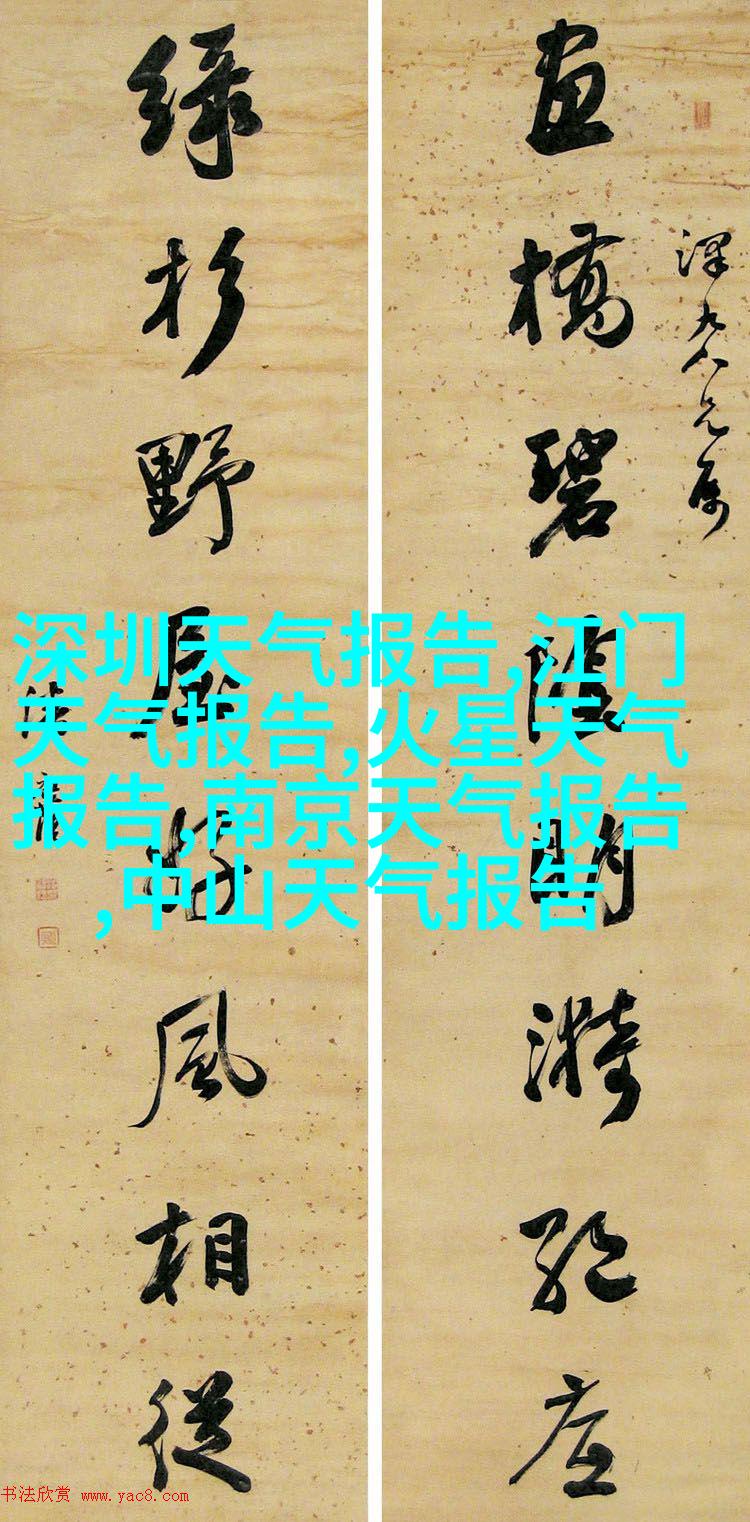 畫橋碧陰明漪絕底
綠杉野屋好風相從
深圳天气报告,江门
天气报告,火星天气
报告,南京天气报告
,中山天气报告
书法欣赏 www.yac8.com